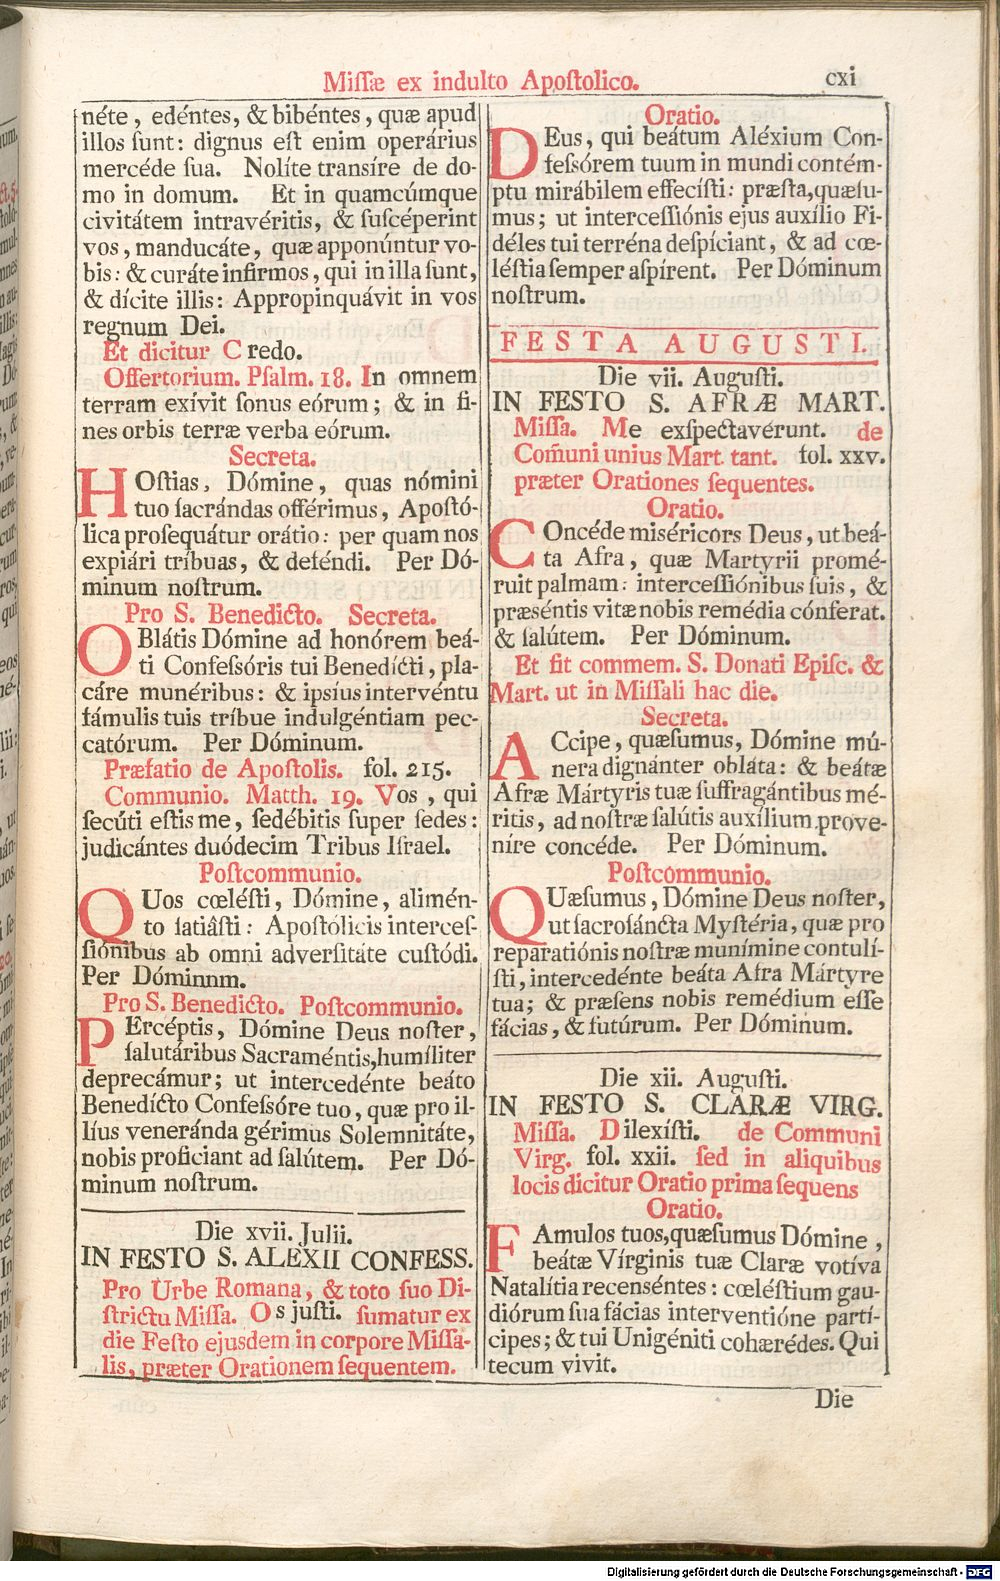 Missæ ex indulto Apostolico. cxi
néte, edéntes, & bibéntes, quæ apud
illos sunt: dignus est enim operárius
mercéde sua. Nolíte transíre de do-
mo in domum. Et in quamcúmque
civitátem intravéritis, & suscéperint
vos, manducáte, quæ apponúntur vo-
bis: & curáte infirmos, qui in illa sunt,
& dícite illis: Appropinquávit in vos
regnum Dei.
Et dicitur Credo.
Offertorium. Psalm. 18. In omnem
terram exívit sonus eórum; & in fi-
nes orbis terræ verba eórum.
Secreta.
HOstias, Dómine, quas nómini
tuo sacrándas offérimus, Apostó-
lica prosequátur orátio: per quam nos
expiári tríbuas, & deféndi. Per Dó-
minum nostrum.
Pro S. Benedicto. Secreta.
OBlátis Dómine ad honórem beá-
ti Confessóris tui Benedícti, pla-
cáre munéribus: & ipsíus intervéntu
fámulis tuis tríbue indulgéntiam pec-
catórum. Per Dóminum.
Præfatio de Apostolis. fol. 215.
Communio. Matth. 19. Vos, qui
secúti estis me, sedébitis super sedes:
judicántes duódecim Tribus Israel.
Postcommunio.
QUos cœlésti, Dómine, alimén-
to satiâsti: Apostólicis interces-
siónibus ab omni adversitáte custódi.
Per Dóminnm.
Pro S. Benedicto. Postcommunio.
PErcéptis, Dómine Deus noster,
salutáribus Sacraméntis, humíliter
deprecámur; ut intercedénte beáto
Benedícto Confessóre tuo, quæ pro il-
líus veneránda gérimus Solemnitáte,
nobis profíciant ad salútem. Per Dó-
minum nostrum.
Die xvii. Julii.
IN FESTO S. ALEXII CONFESS.
Pro Urbe Romana, & toto suo Di-
strictu Missa. Os justi. sumatur ex
die Festo ejusdem in corpore Missa-
lis, præter Orationem sequentem.
Oratio.
DEus, qui beátum Aléxium Con-
fessórem tuum in mundi contém-
ptu mirábilem effecísti: præsta, quæsu-
mus; ut intercessiónis ejus auxílio Fi-
déles tui terréna despíciant, & ad cœ-
léstia semper aspírent. Per Dóminum
nostrum.
FESTA AUGUSTI.
Die vii. Augusti.
IN FESTO S. AFRÆ MART.
Missa. Me exspectavérunt. de
Com̃uni unius Mart. tant. fol. xxv.
præter Orationes sequentes.
Oratio.
COncéde miséricors Deus, ut beá-
ta Afra, quæ Martyrii promé-
ruit palmam: intercessiónibus suis, &
præséntis vitæ nobis remédia cónferat.
& salútem. Per Dóminum.
Et fit commem. S. Donati Episc. &
Mart. ut in Missali hac die.
Secreta.
ACcipe, quæsumus, Dómine mú-
nera dignánter obláta: & beátæ
Afræ Mártyris tuæ suffragántibus mé-
ritis, ad nostræ salútis auxílium prove-
níre concéde. Per Dóminum.
Postcommunio.
QUæsumus, Dómine Deus noster,
ut sacrosáncta Mystéria, quæ pro
reparatiónis nostræ munímine contulí-
sti, intercedénte beáta Afra Mártyre
tua; & præsens nobis remédium esse
fácias, & futúrum. Per Dóminum.
Die xii. Augusti.
IN FESTO S. CLARÆ VIRG.
Missa. Dilexísti. de Communi
Virg. fol. xxii. sed in aliquibus
locis dicitur Oratio prima sequens
Oratio.
FAmulos tuos, quæsumus Dómine,
beátæ Vírginis tuæ Claræ votíva
Natalítia recenséntes: cœléstium gau-
diórum sua fácias interventióne partí-
cipes; & tui Unigéniti cohærédes. Qui
tecum vivit.
Die
Digitalisierung gefördert durch die Deutsche Forschungsgemeinschaft - DFG